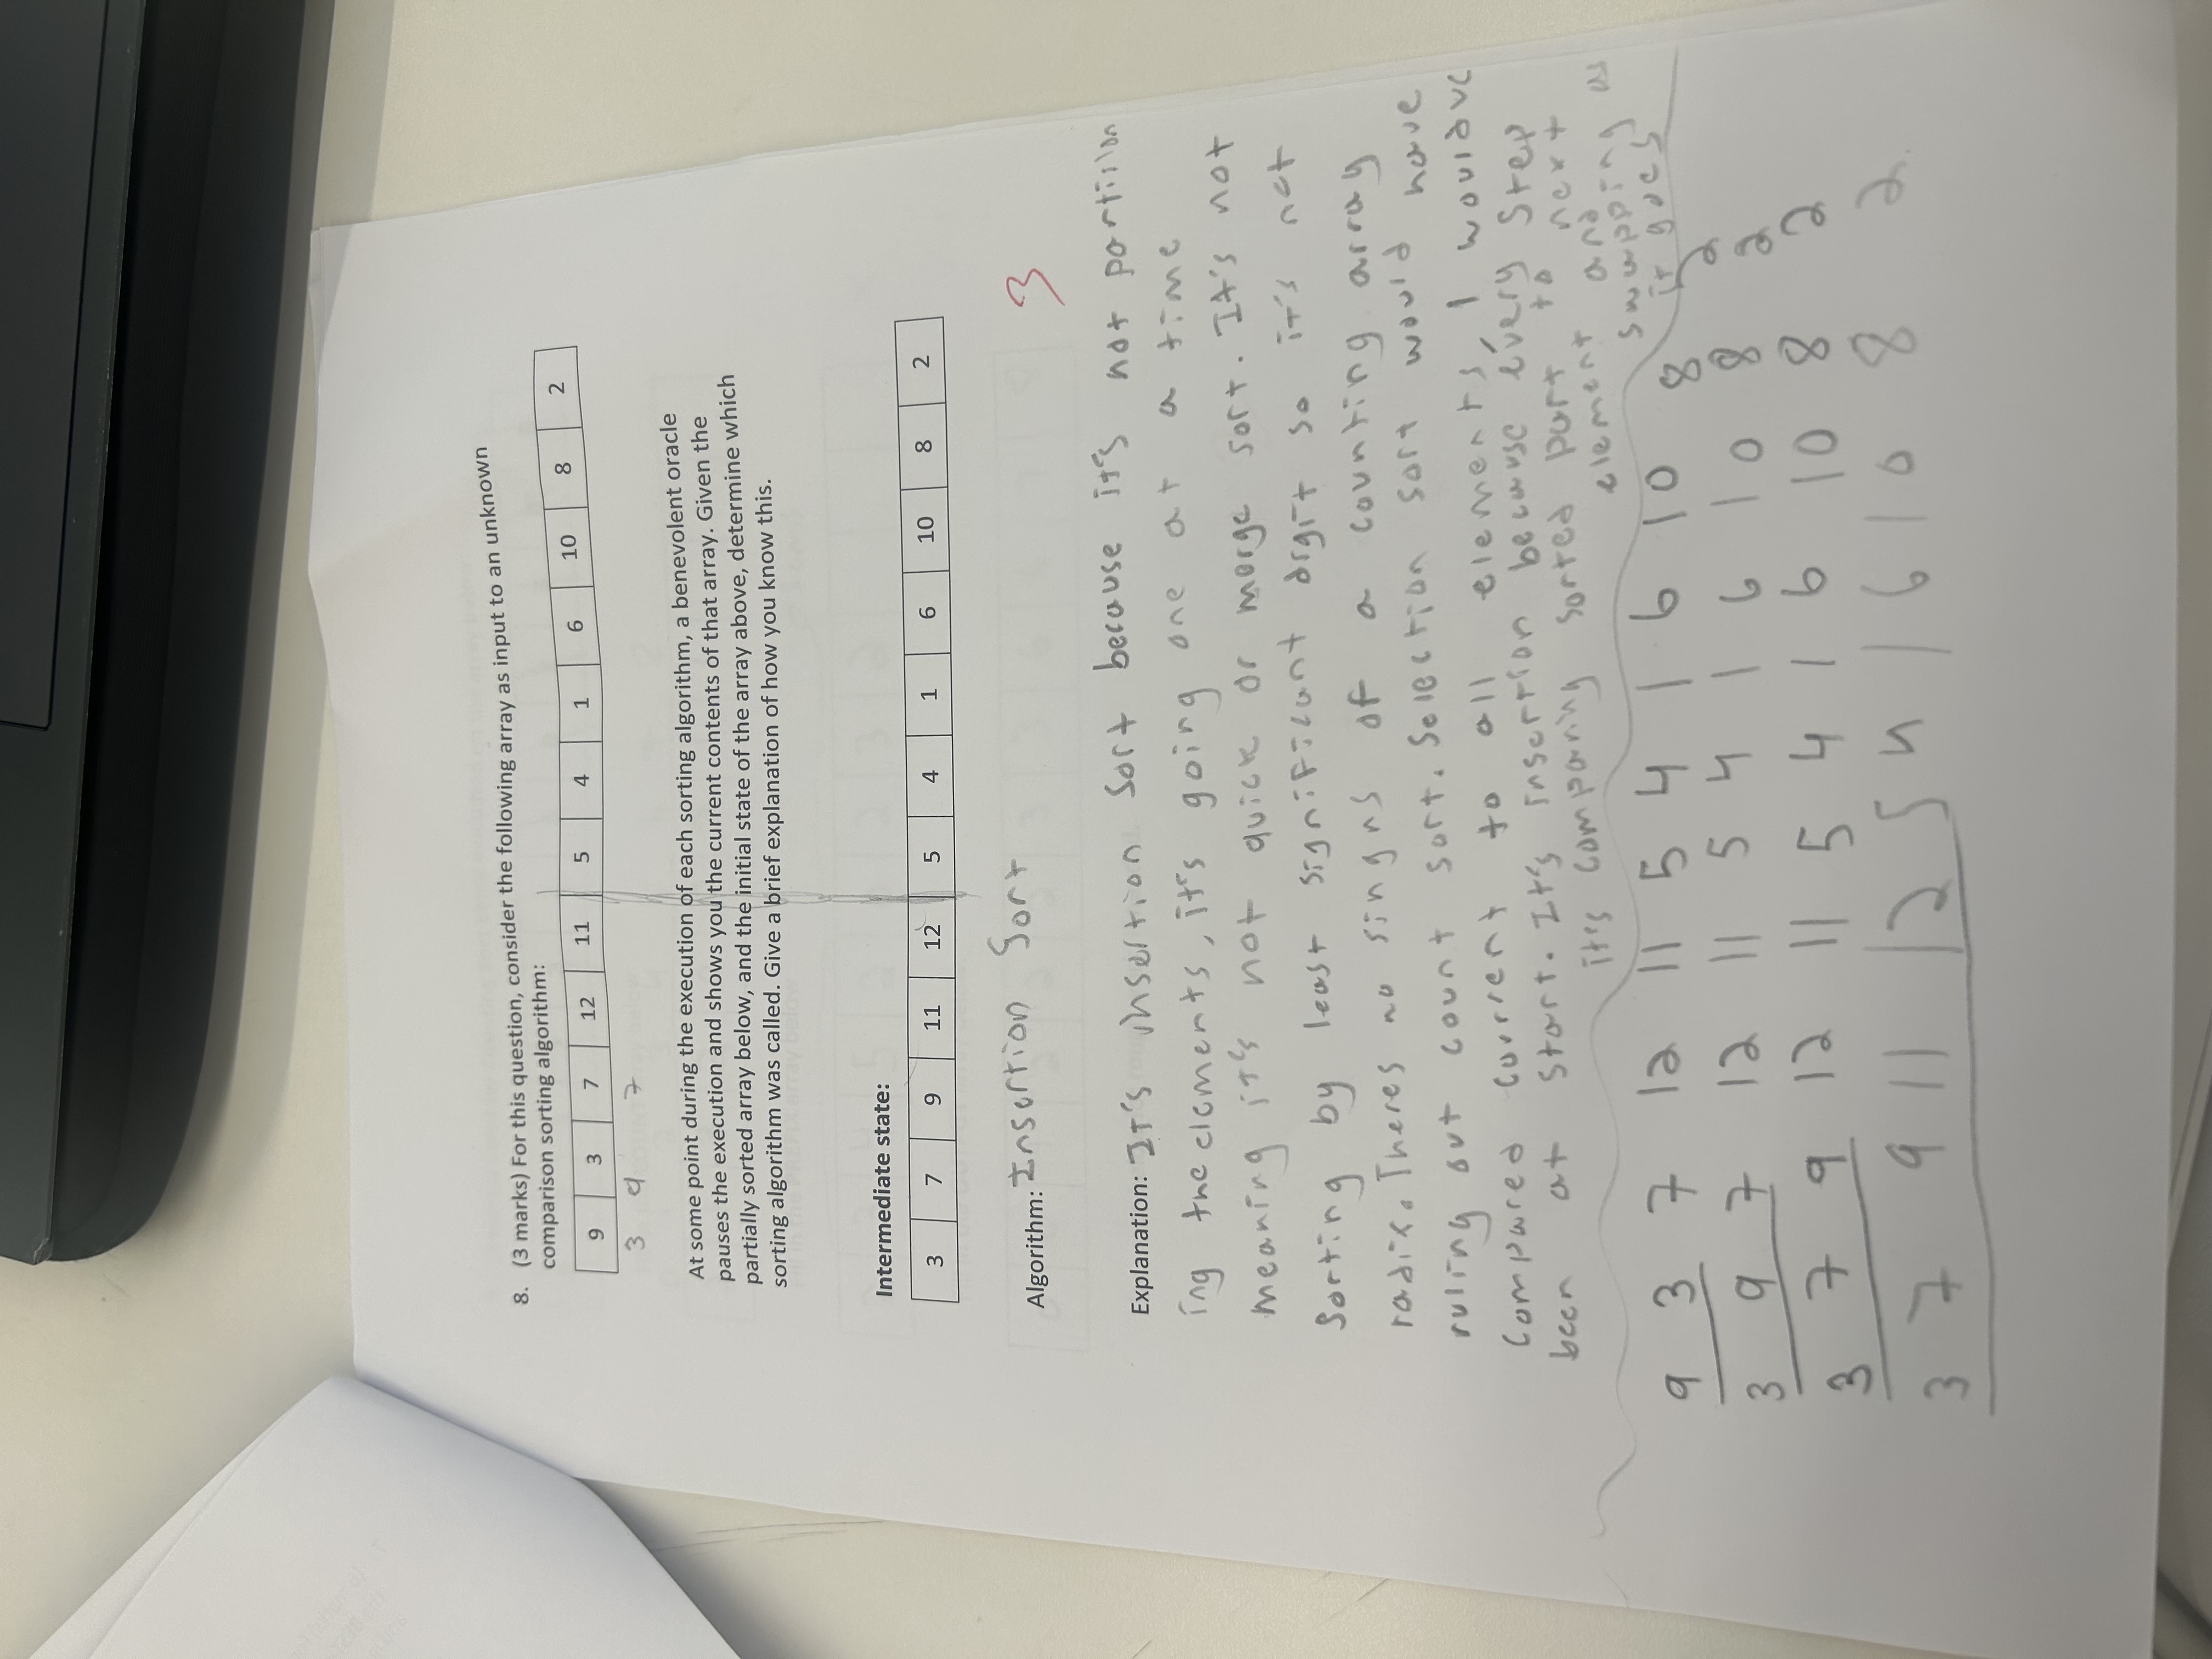 8. (3 marks) For this question, consider the following array as input to an unknown
comparison sorting algorithm:
9 3 7 12 11 5 4 1 6 10 8 2
3 9 7
At some point during the execution of each sorting algorithm, a benevolent oracle
pauses the execution and shows you the current contents of that array. Given the
partially sorted array below, and the initial state of the array above, determine which
sorting algorithm was called. Give a brief explanation of how you know this.
Intermediate state:
3 7 9 11 12 5 4 1 6 10 8 2
Algorithm: Insertion Sort
3
Explanation: It's insertion Sort because it's not partision
ing the elements, it's going one at a time
meaning it's not quick or merge sort. It's not
Sorting by least significant digit so it's not
radix. Theres no singns of a counting array
ruling out count sort. Selection sort would have
Compared current to all elements, 1 would've
been at start. It's insertion because every Step
it's comparing sorted part to next
element and
swapping as
it goes
9 3 7 12 11 5 4 1 6 10 8 2
3 9 7 12 11 5 4 1 6 10 8 2
3 7 9 12 11 5 4 1 6 10 8 2
3 7 9 11 12 5 4 1 6 10 8 2